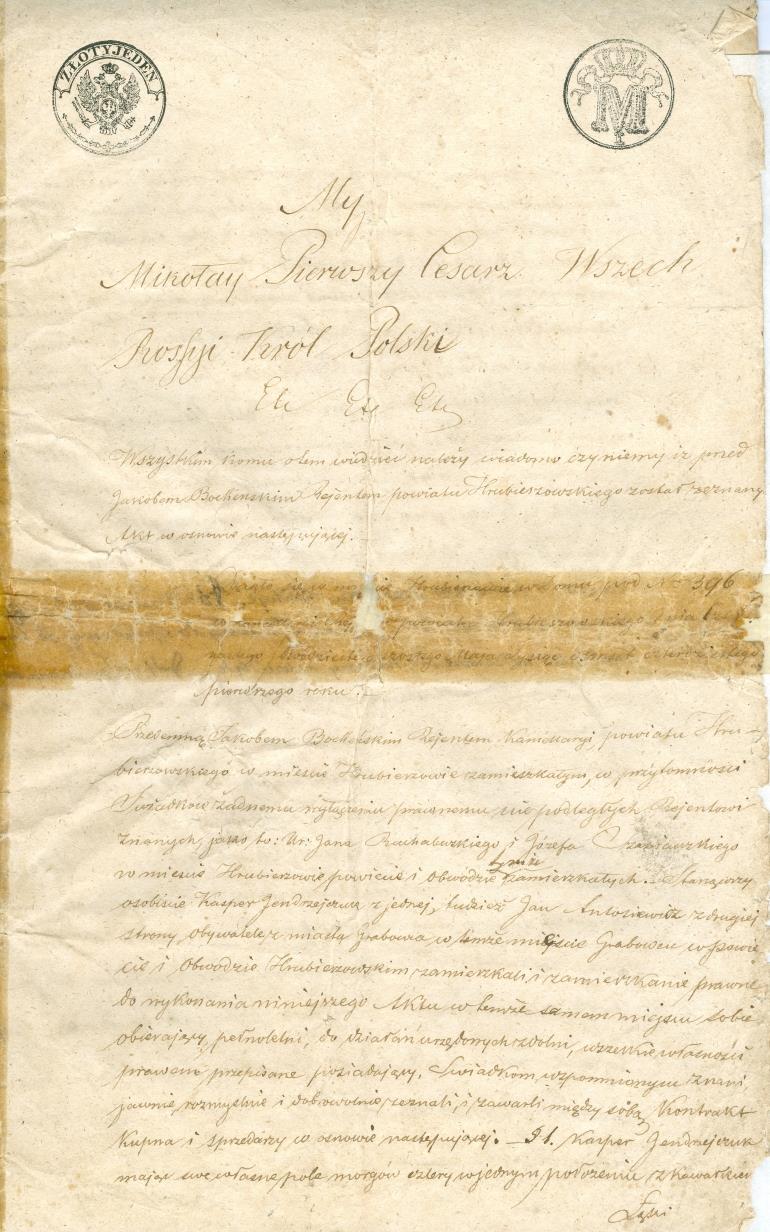 ZŁOTY JEDEN
M
My
Mikołay Pierwszy Cesarz Wszech
Rossyi Król Polski
Etc Etc Etc
Wszystkim komu o tem wiedzieć należy wiadomo czyniemy iż przed
Jakobem Bocheńskim Rejentem powiatu Hrubieszowskiego został zeznany
Akt w osnowie następującej.
Działo się w mieście Hrubieszowie w Domu pod No 396
powiatu Hrubieszowskiego dnia
Maja tysiąc ośmset czterdziestego
pierwszego roku.
Przedemną Jakobem Bocheńskim Rejentem Kancellaryi powiatu Hru-
bieszowskiego w mieście Hrubieszowie zamieszkałym, w przytomności
Świadków żadnemu wyłączeniu prawnemu nie podległych Rejentowi
znanych, jako to: Ur: Jana i Józefa
tymże
w mieście Hrubieszowie powiecie i Obwodzie zamieszkałych. Stanąwszy
osobiście Kasper Jendrzejczuk z jednej, tudzież Jan Antosiewicz z drugiej
strony, obywatele z miasta Grabowca w temże mieście Grabowcu w powie
cie i Obwodzie Hrubieszowskim zamieszkali i zamieszkanie prawne
do wykonania niniejszego Aktu w temże samem miejscu sobie
obierający, pełnoletni, do działań urzędowych zdolni, wszelkie własności
prawem przepisane posiadający. Świadkom wspomnionym znani,
jawnie, rozmyślnie i dobrowolnie zeznali, i zawarli między sobą Kontrakt
Kupna i sprzedarzy w osnowie następującej. § 1. Kasper Jendrzejczuk
mając swe własne pole morgów cztery w jednym położeniu z kawałkiem
Łąki